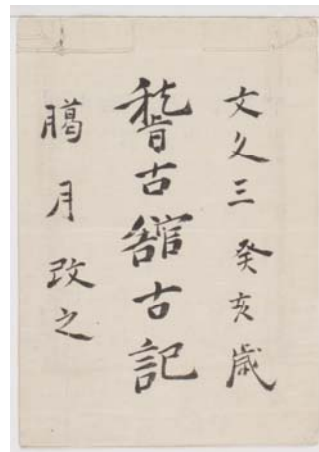 文久三癸亥歳
稽古舘古記
臈月改之